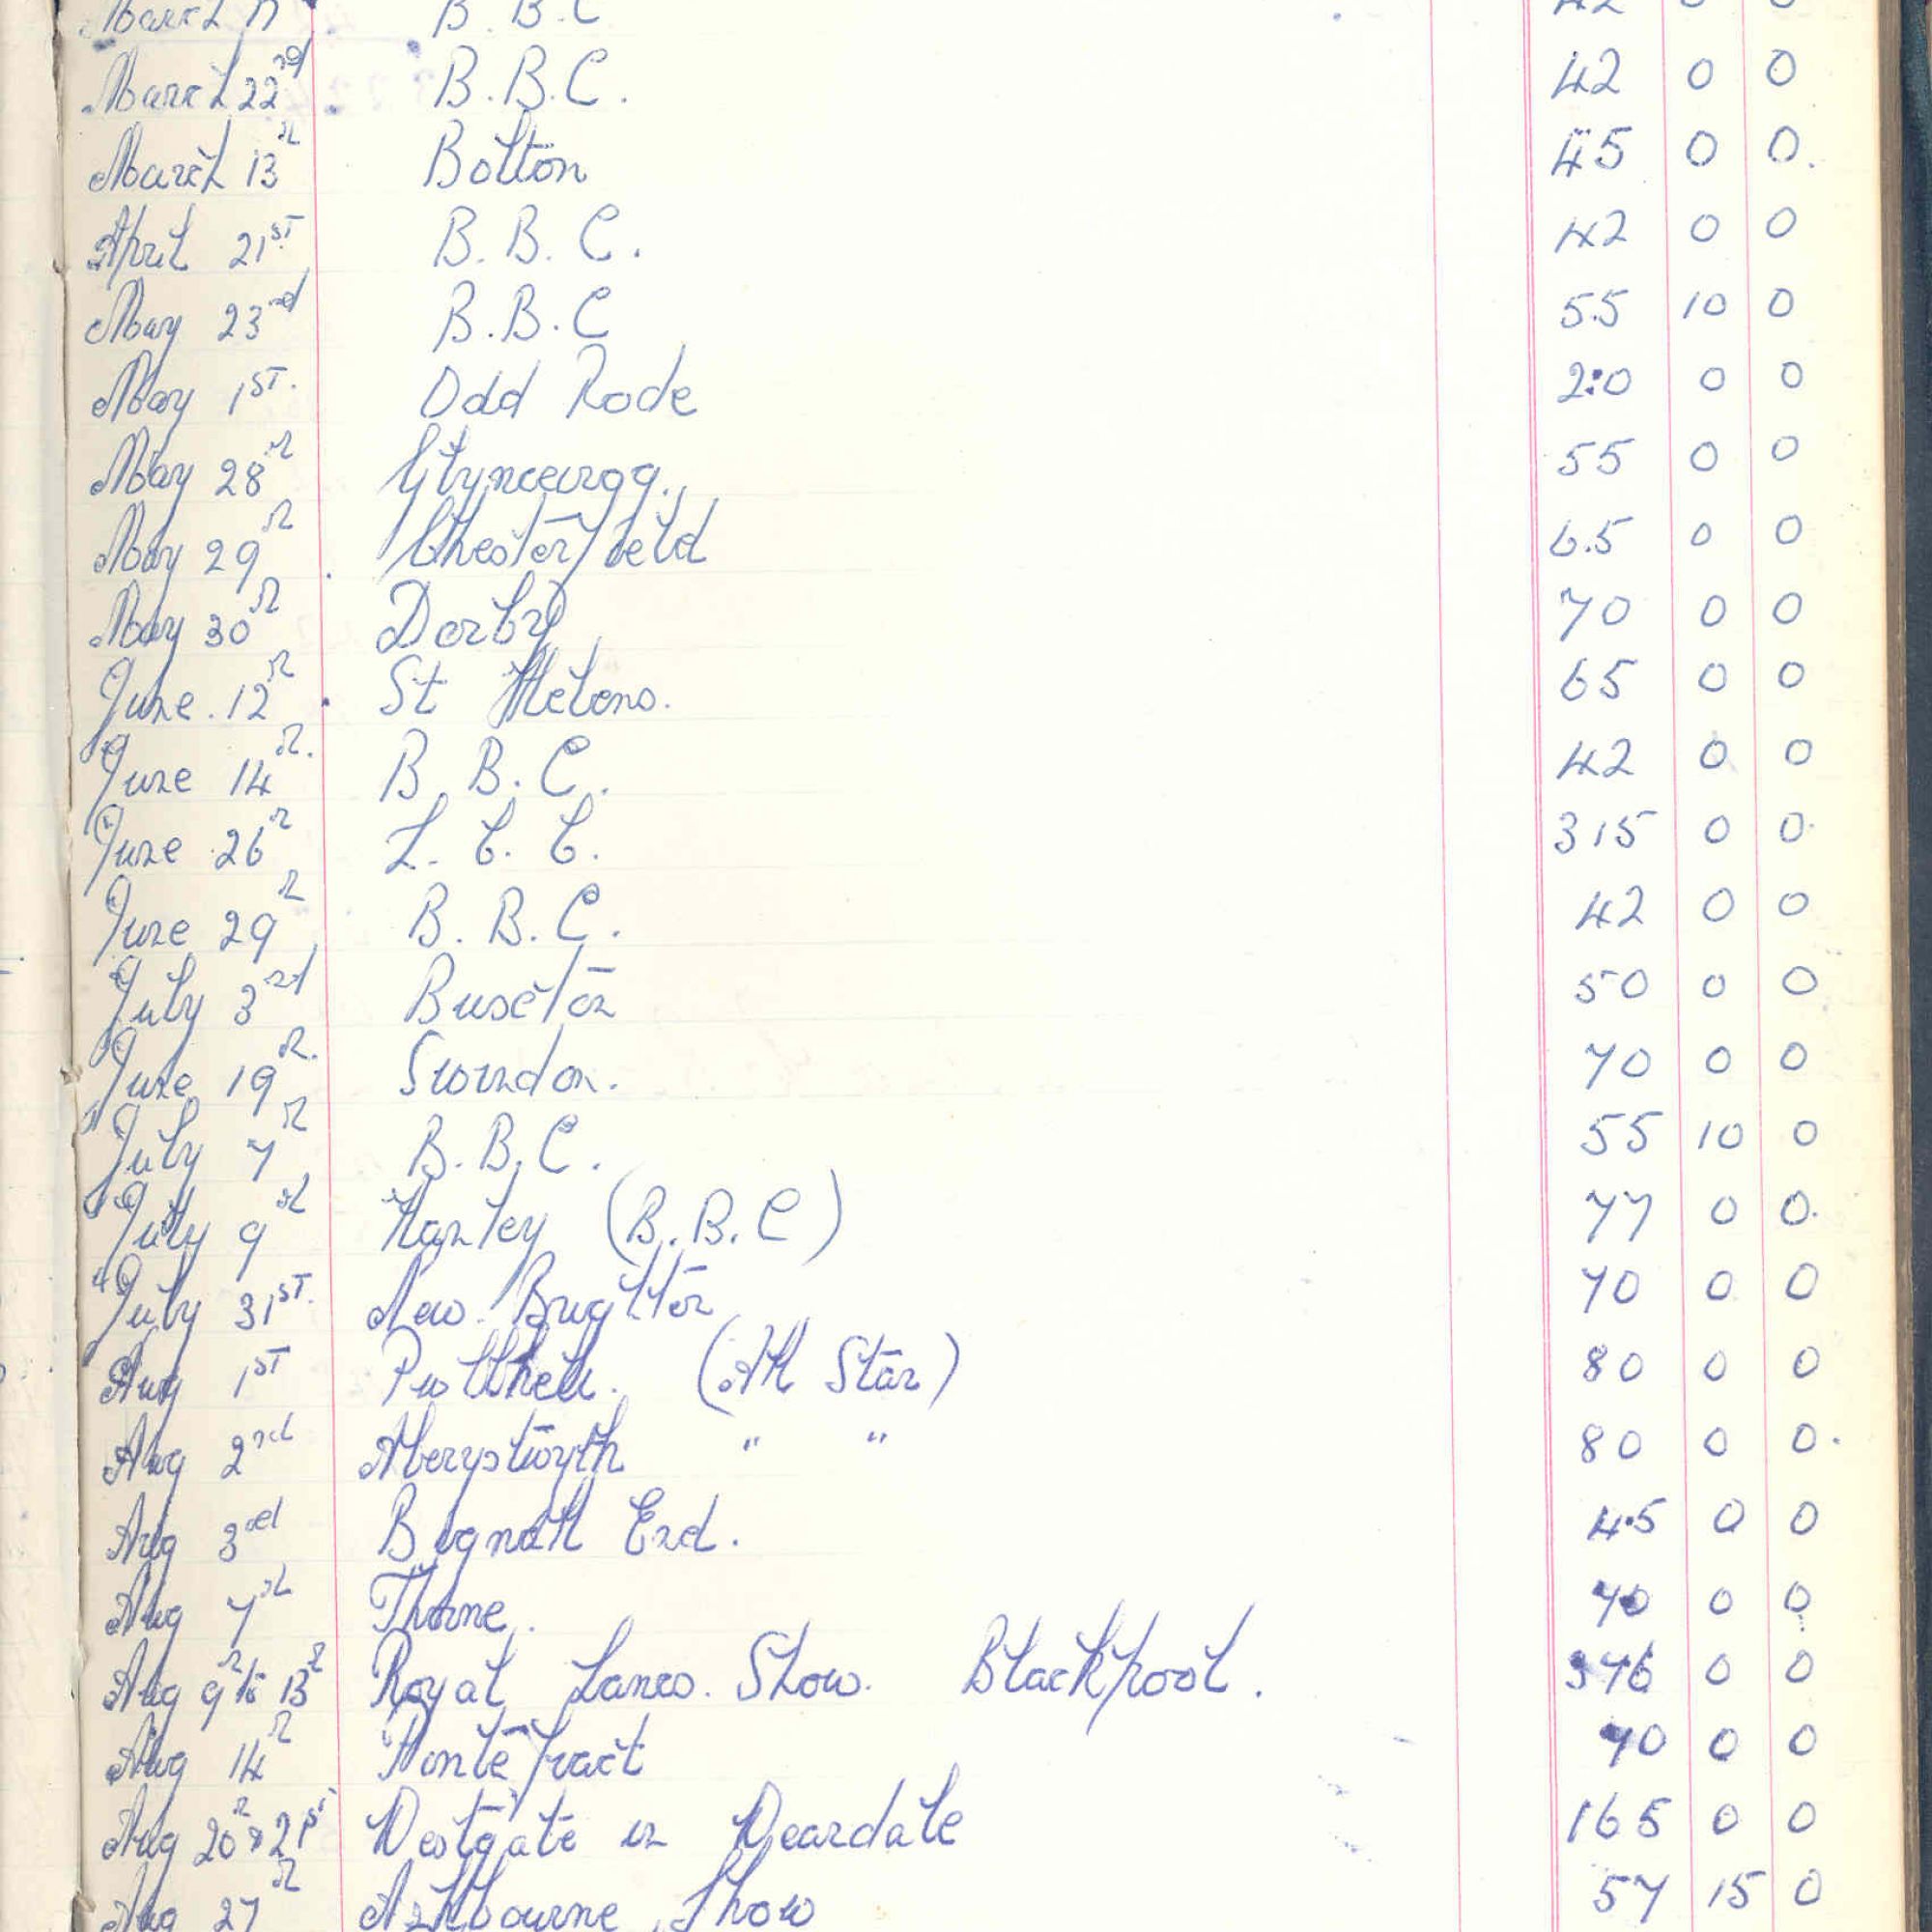 B. B. C 42 0 0
March 22nd B.B.C. 42 0 0
March 13th Bolton 45 0 0.
April 21ST B. B. C. 42 0 0
May 23rd B.B.C 55 10 0
May 1ST. Odd Rode 20 0 0
May 28th Glyncewrgg. 55 0 0
May 29th Chesterfield 65 0 0
May 30th Derby 70 0 0
June 12th St Helens. 65 0 0
June 14th. B. B. C. 42 0 0
June 26th L. C. C. 315 0 0
June 29th B. B. C. 42 0 0
July 3rd 50 0 0
June 19th. Swindon. 70 0 0
July 7th B. B. C. 55 10 0
July 9th Hanley (B. B. C) 77 0 0.
July 31ST. New Brighton 70 0 0
Aug 1ST Pwllheli. (All Star) 80 0 0
Aug 2nd Aberystwyth " " 80 0 0.
Aug 3rd Bignall End. 45 0 0
Aug 7th Thorne. 70 0 0
Aug 9th to 13th Royal Lancs. Show. Blackpool. 376 0 0
Aug 14th Pontefract 70 0 0
Aug 20th & 21st Westgate in Weardale 165 0 0
Aug 27th Ashbourne Show 57 15 0